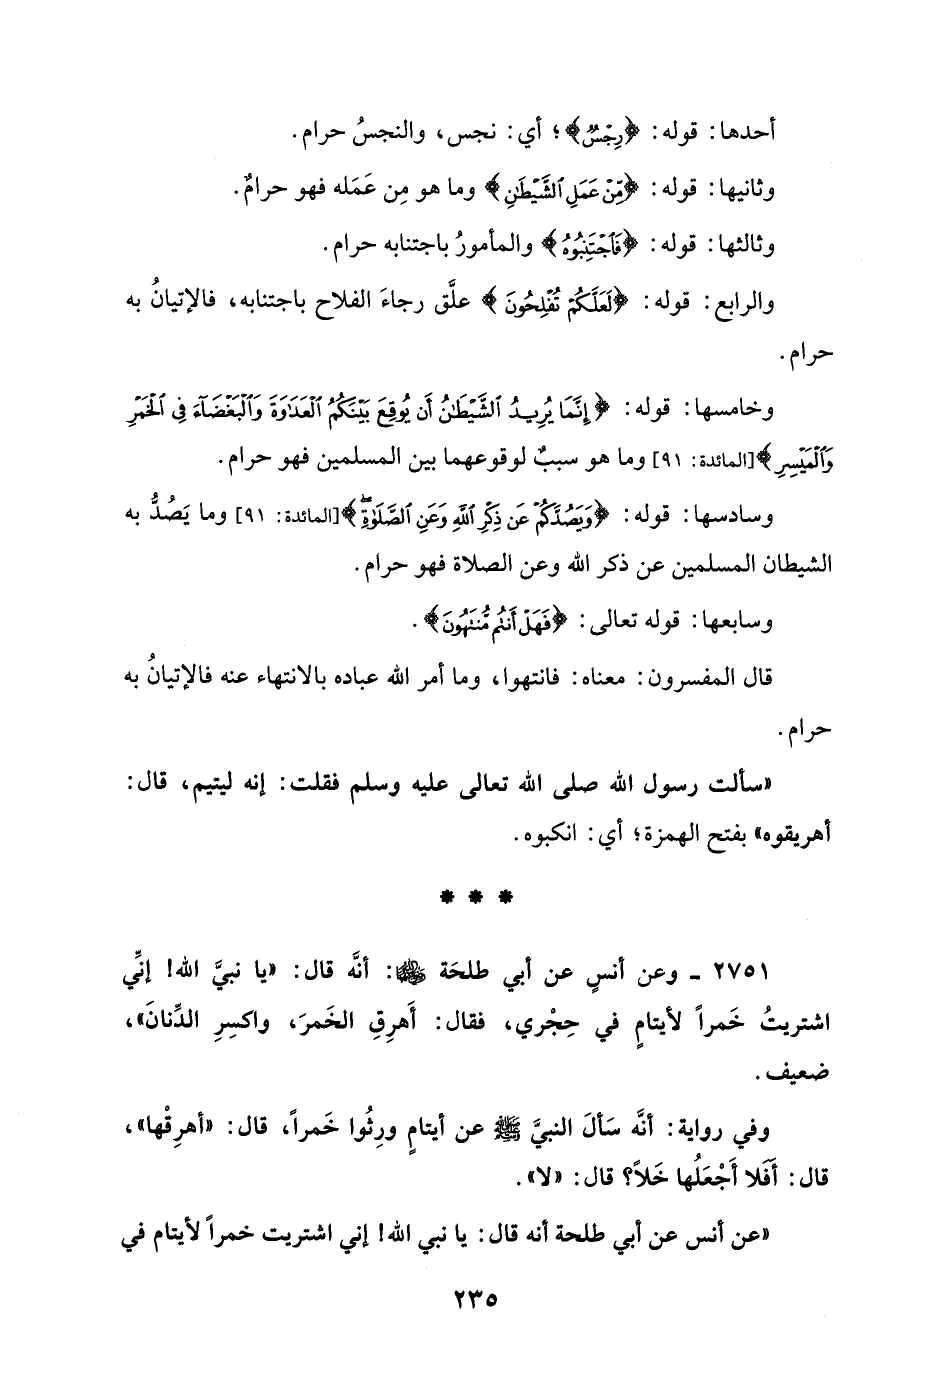 أحدها: قوله: ﴿رِجْسٌ﴾؛ أي: نجس، والنجسُ حرام.
وثانيها: قوله: ﴿مِّنْ عَمَلِ ٱلشَّيْطَٰنِ﴾ وما هو مِن عَمَله فهو حرامٌ.
وثالثها: قوله: ﴿فَٱجْتَنِبُوهُ﴾ والمأمورُ باجتنابه حرام.
والرابع: قوله: ﴿لَعَلَّكُمْ تُفْلِحُونَ﴾ علَّق رجاءَ الفلاح باجتنابه، فالإتيانُ به
حرام.
وخامسها: قوله: ﴿إِنَّمَا يُرِيدُ ٱلشَّيْطَٰنُ أَن يُوقِعَ بَيْنَكُمُ ٱلْعَدَٰوَةَ وَٱلْبَغْضَآءَ فِى ٱلْخَمْرِ
وَٱلْمَيْسِرِ﴾[المائدة: ٩١] وما هو سببٌ لوقوعهما بين المسلمين فهو حرام.
وسادسها: قوله: ﴿وَيَصُدَّكُمْ عَن ذِكْرِ ٱللَّهِ وَعَنِ ٱلصَّلَوٰةِۖ﴾[المائدة: ٩١] وما يَصُدُّ به
الشيطان المسلمين عن ذكر الله وعن الصلاة فهو حرام.
وسابعها: قوله تعالى: ﴿فَهَلْ أَنتُم مُّنتَهُونَ﴾.
قال المفسرون: معناه: فانتهوا، وما أمر الله عباده بالانتهاء عنه فالإتيانُ به
حرام.
«سألت رسول الله صلى الله تعالى عليه وسلم فقلت: إنه ليتيم، قال:
أهريقوه» بفتح الهمزة؛ أي: انكبوه.
* * *
٢٧٥١ ـ وعن أنسٍ عن أبي طلحَة ﷺ: أنَّه قال: «يا نبيَّ الله! إنِّي
اشتريتُ خَمراً لأيتامٍ في حِجْري، فقال: أَهرِقِ الخَمرَ، واكسِرِ الدِّنانَ»،
ضعيف.
وفي رواية: أنَّه سَألَ النبيَّ ﷺ عن أيتامٍ ورِثُوا خَمراً، قال: «أهرِقْها»،
قال: أَفَلا أَجْعَلُها خَلاً؟ قال: «لا».
«عن أنس عن أبي طلحة أنه قال: يا نبي الله! إني اشتريت خمراً لأيتام في
٢٣٥